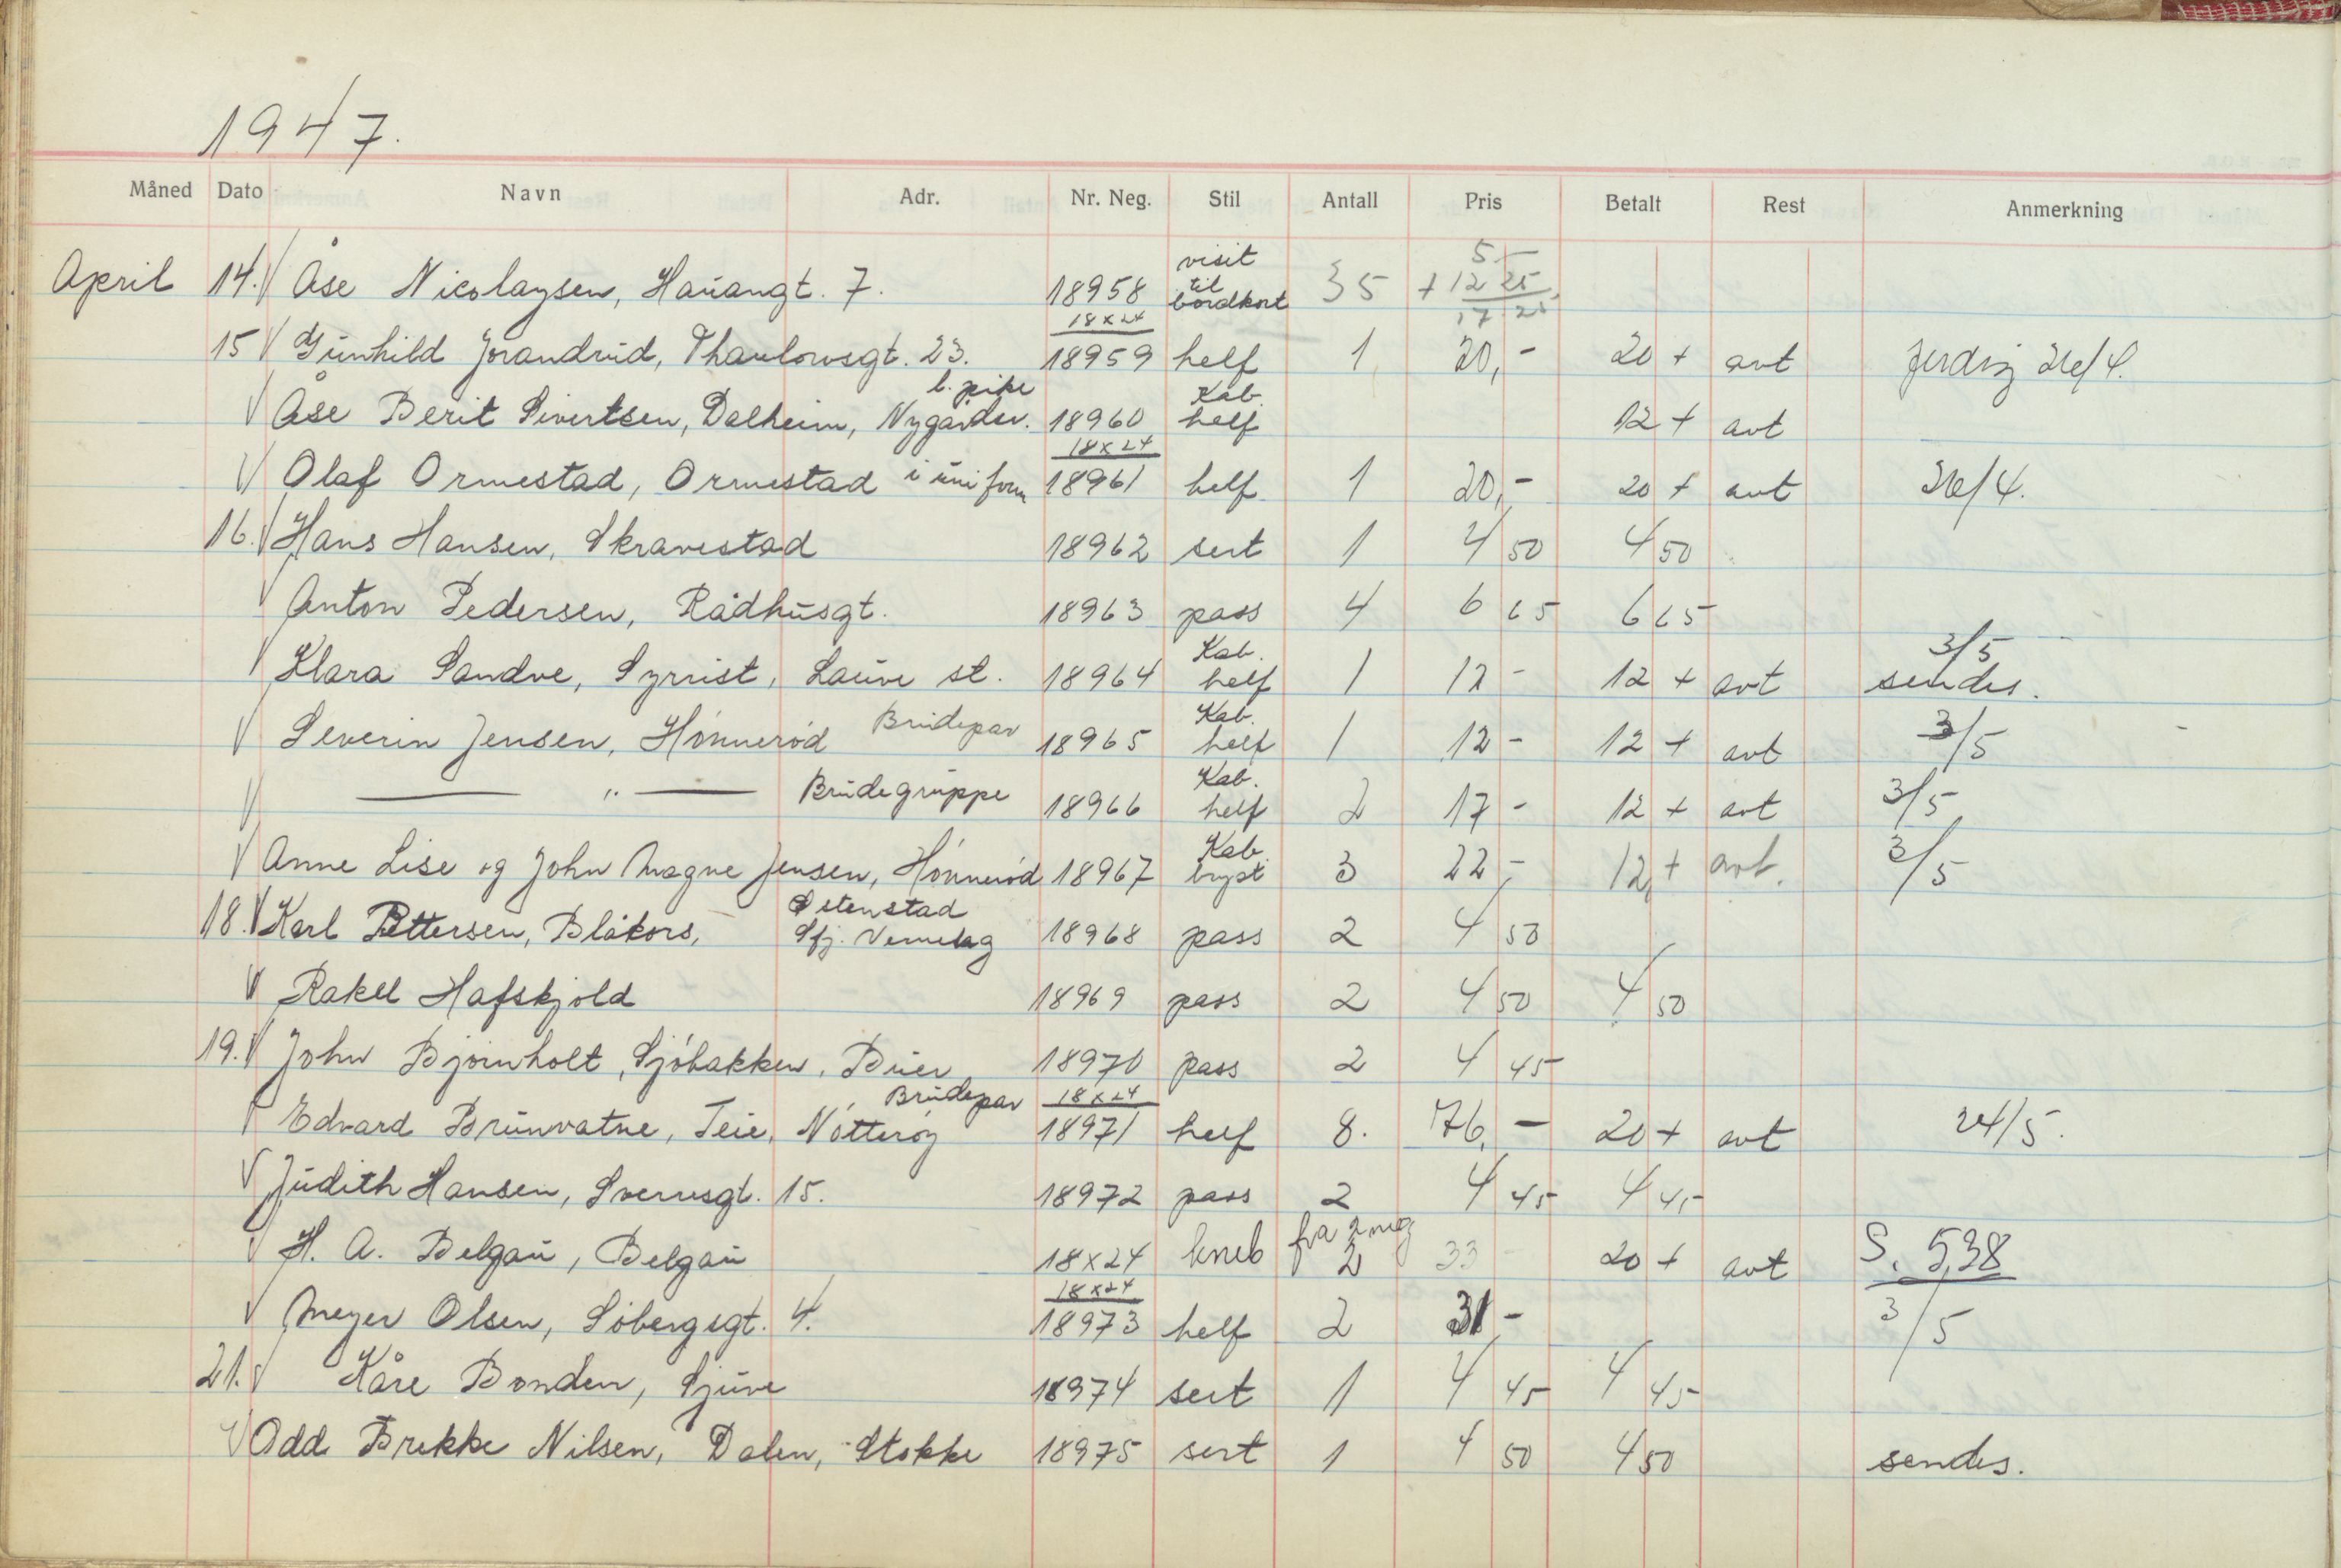 1947.
Måned Dato Navn Adr. Nr. Neg. Stil Antall Pris Betalt Rest Anmerkning
April 14. Åse Nicolaysen, Haŭangt. 7. 18958 visit til bordkort 35 5 - + 12 25 17 25
15 Gŭnhild Jorandrŭd, Thaulowsgt. 23. 18x24 18959 helf 1 20,- 20 + avt ferdig 26/4.
Åse Berit Sivertsen, Dalheim, Nygårdsv. l. pike 18960 Kab. helf 12 + avt
Olaf Ormestad, Ormestad i ŭniform 18x24 18961 helf 1 20,- 20 + avt 26/4.
16. Hans Hansen, Skravestad 18962 sert 1 4 50 4 50
Anton Pedersen, Rådhŭsgt. 18963 pass 4 6 65 6 65
Klara Sandve, Syrrist, Laŭve st. 18964 Kab. helf 1 12 - 12 + avt 3/5 sendes.
Severin Jensen, Hónnerød Brŭdepar 18965 Kab. helf 1 12 - 12 + avt 3/5
— " — Brŭdegrŭppe 18966 Kab. helf 2 17 - 12 + avt 3/5
Anne Lise og John Magne Jensen, Hónnerød 18967 Kab. bryst 3 22,- 12 + avt. 3/5
18. Karl Pettersen, Blåkors, Østenstad Sfj. Vernelag 18968 pass 2 4 50
Rakel Hafskjold 18969 pass 2 4 50 4 50
19. John Bjørnholt, Sjóbakken, Bŭer 18970 pass 2 4 45
Edvard Brŭnvatne, Teie, Nótterøy Brŭdepar 18x24 18971 helf 8. 76,- 20 + avt 24/5.
Jŭdith Hansen, Sverresgt. 15. 18972 pass 2 4 45 4 45
H. A. Belgaŭ, Belgaŭ 18x24 kneb fra 2 neg 2 33 - 20 + avt S. 538
Meyer Olsen, Sóbergsgt. 4. 18x24 18973 helf 2 31,- 3/5
21. Kåre Bonden, Sjŭve 18974 sert 1 4 45 4 45
Odd Brekke Nilsen, Dalen, Stokke 18975 sert 1 4 50 4 50 sendes.